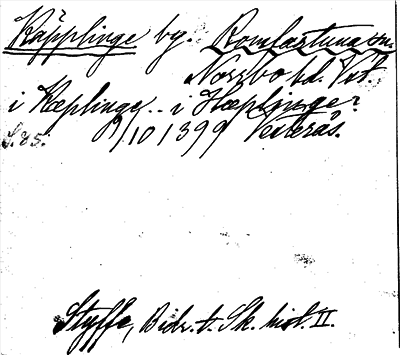 Käpplinge by. Romfartuna sn.
Norrbo hd. Vstm.
i Kæplinge .. i Kæplinge?
S. 85. 9/10 1399 Vesterås.
Styffe, Bidr. t. Sk. hist. II.